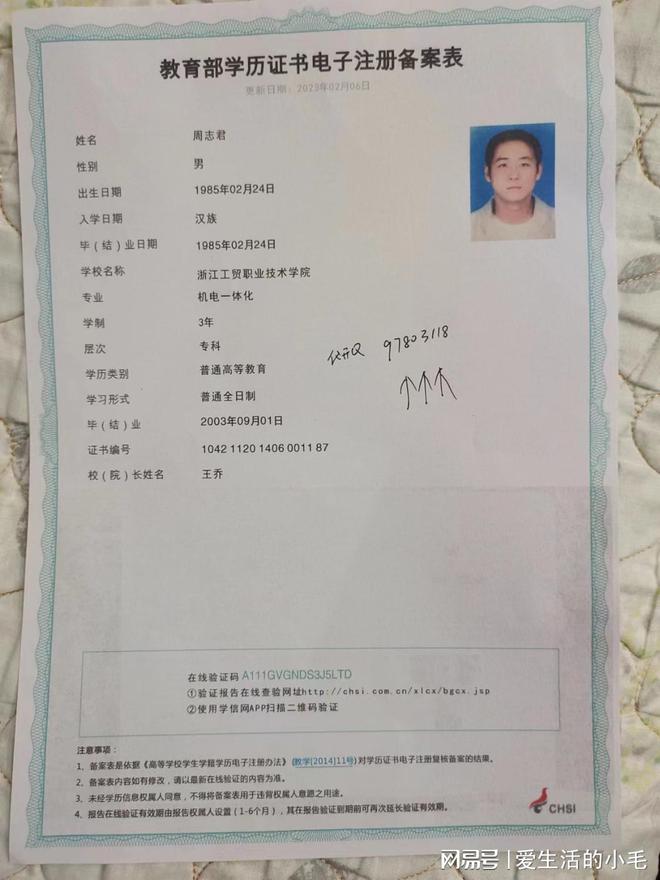 教育部学历证书电子注册备案表
更新日期：2023年02月06日
姓名 周志君
性别 男
出生日期 1985年02月24日
入学日期 汉族
毕（结）业日期 1985年02月24日
学校名称 浙江工贸职业技术学院
专业 机电一体化
学制 3年
层次 专科
97803118
学历类别 普通高等教育
学习形式 普通全日制
毕（结）业 2003年09月01日
证书编号 1042 1120 1406 0011 87
校（院）长姓名 王乔
在线验证码 A111GVGNDS3J5LTD
①验证报告在线查验网址http://chsi.com.cn/xlcx/bgcx.jsp
②使用学信网APP扫描二维码验证
注意事项：
1、备案表是依据《高等学校学生学籍学历电子注册办法》(教学[2014]11号)对学历证书电子注册复核备案的结果。
2、备案表内容如有修改，请以最新在线验证的内容为准。
3、未经学历信息权属人同意，不得将备案表用于违背权属人意愿之用途。
4、报告在线验证有效期由报告权属人设置（1-6个月），其在报告验证到期前可再次延长验证有效期。
CHSI
网易号 | 爱生活的小毛